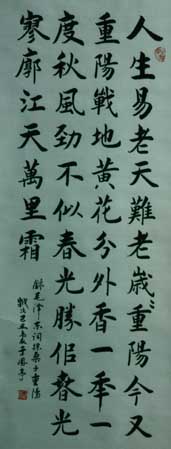 人生易老天難老歲〻重陽今又
重陽戰地黃花分外香一秊一
度秋風勁不似春光勝佀春光
寥廓江天萬里霜
錄毛澤東詞採桑子重陽